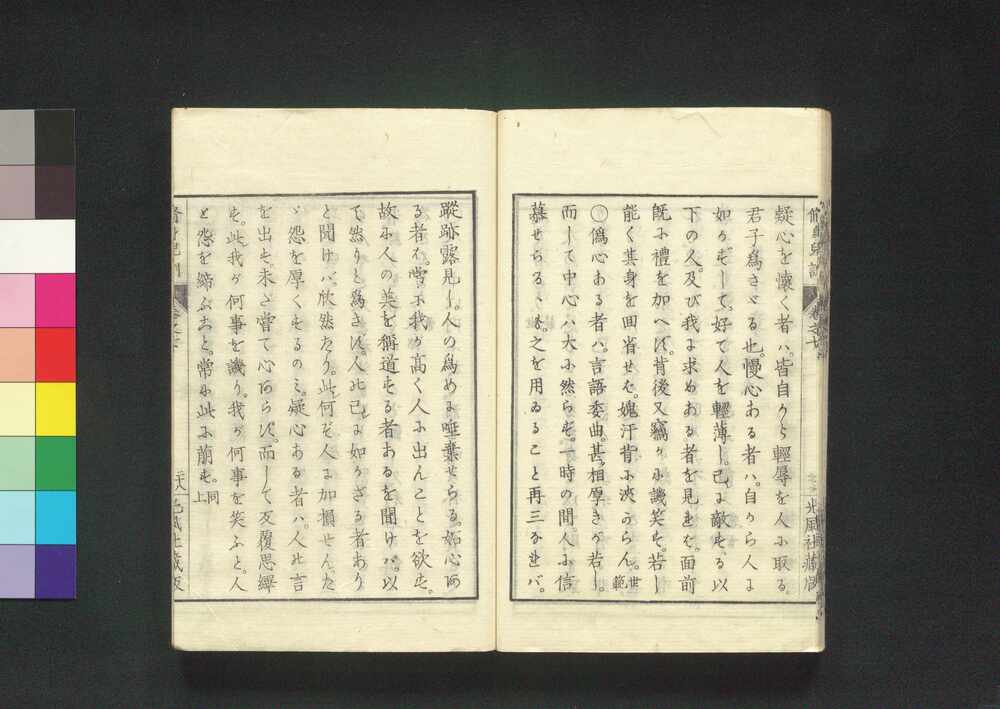 疑心を懷く者ハ。皆自から輕辱を人に取る。
君子爲さゞる也。慢心ある者ハ。自から人に
如かずして、好て人を輕薄し。己に敵する以
下の人。及び我に求めある者を見れば。面前
既に禮を加へず。背後又竊かに譏笑す。若し
能く其身を回省せば。愧汗背に浹からん。世範
〇僞心ある者ハ。言語委曲。甚相厚きが若し。
而して中心ハ大に然らず。一時の間。人に信
慕せらるゝも。之を用ゐること再三なせバ。
蹤跡露見し。人の爲めに唾棄せらる。妬心ある
る者は。常に我が高く人に出んことを欲す。
故に人の美を稱道する者あるを聞けバ。以
て然りと爲さず。人の己に如かざる者あり
と聞けバ。欣然たり。此何ぞ人に加損せん。た
ゞ怨を厚くするのミ。疑心ある者ハ。人の言
を出す。未だ嘗て心あらず。而して反覆思繹
す。此我が何事を譏り。我が何事を笑ふと。人
と怨を締ぶこと。常に此に萠す。同上
光風社藏版